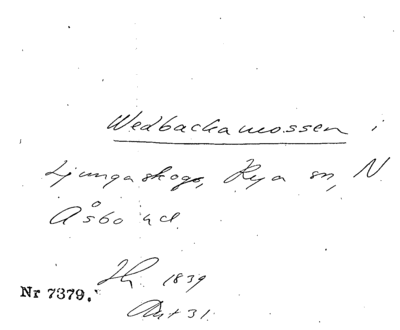 Wedbackamossen i
Ljungaskog, Rya sn, N.
Åsbo hd.
1839
Nr 7379.
Akt 31.